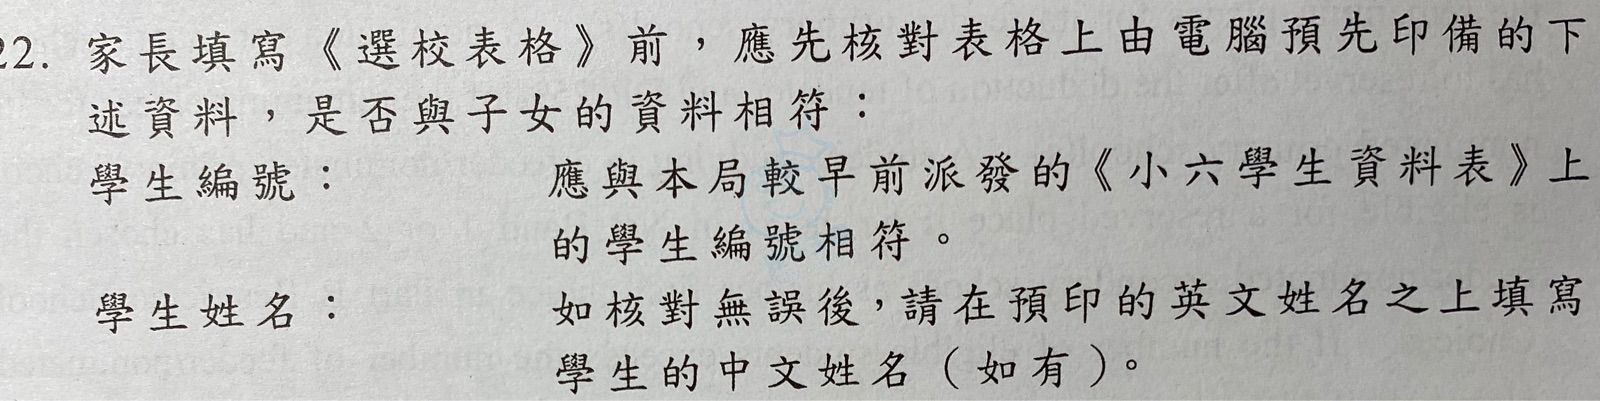 22. 家長填寫《選校表格》前，應先核對表格上由電腦預先印備的下
述資料，是否與子女的資料相符：
學生編號： 應與本局較早前派發的《小六學生資料表》上
的學生編號相符。
學生姓名： 如核對無誤後，請在預印的英文姓名之上填寫
學生的中文姓名（如有）。